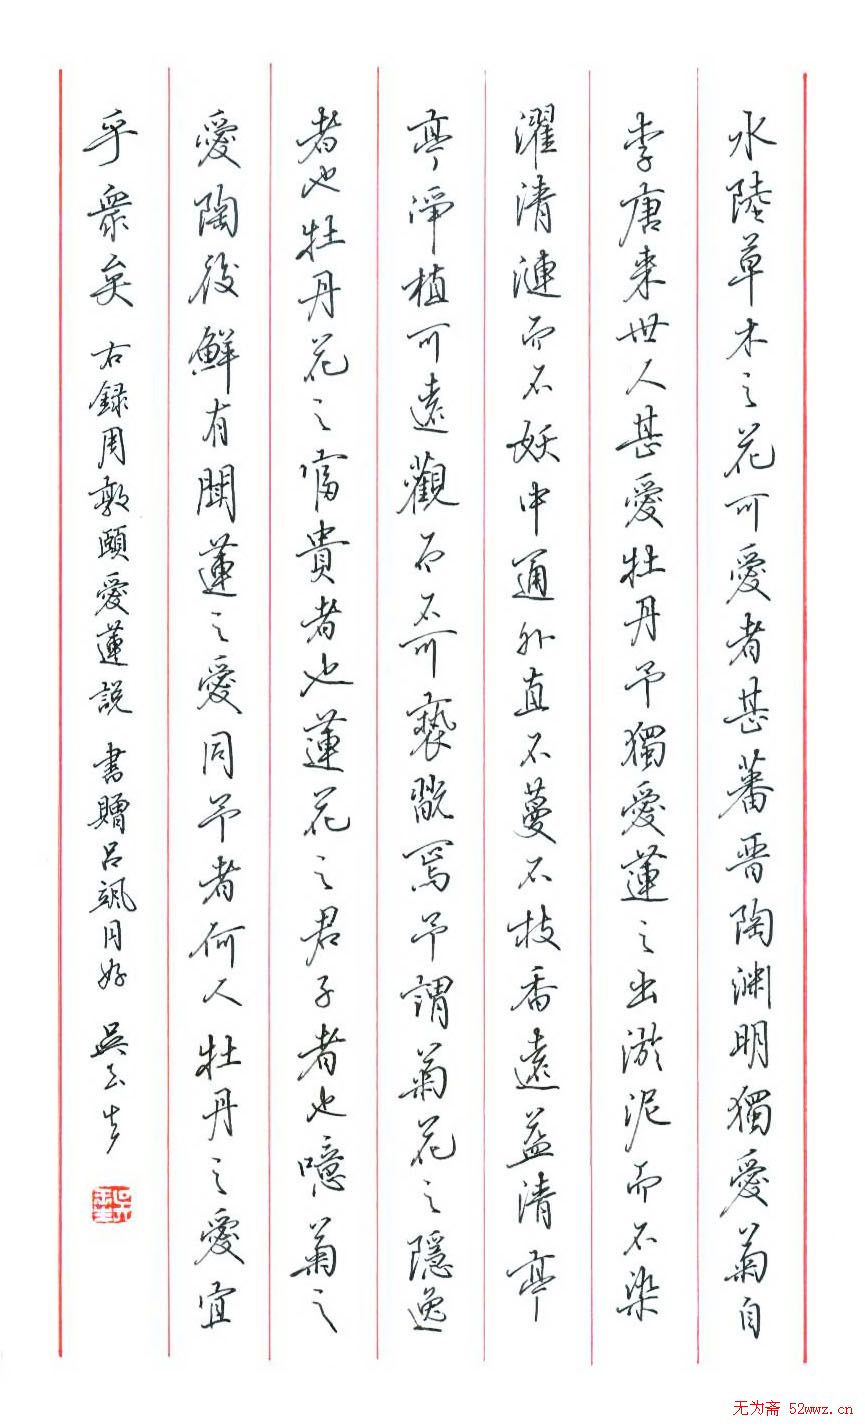 水陸草木之花可愛者甚蕃晋陶渊明獨愛菊自
李唐来世人甚愛牡丹予獨愛蓮之出淤泥而不染
濯清漣而不妖中通外直不蔓不枝香遠益清亭
亭淨植可遠觀而不可褻翫焉予謂菊花之隱逸
者也牡丹花之富貴者也蓮花之君子者也噫菊之
愛陶後鮮有聞蓮之愛同予者何人牡丹之愛宜
乎衆矣 右録周敦頤愛蓮説 書贈吕飒同好 吳玉生
无为斋 52wwz.cn